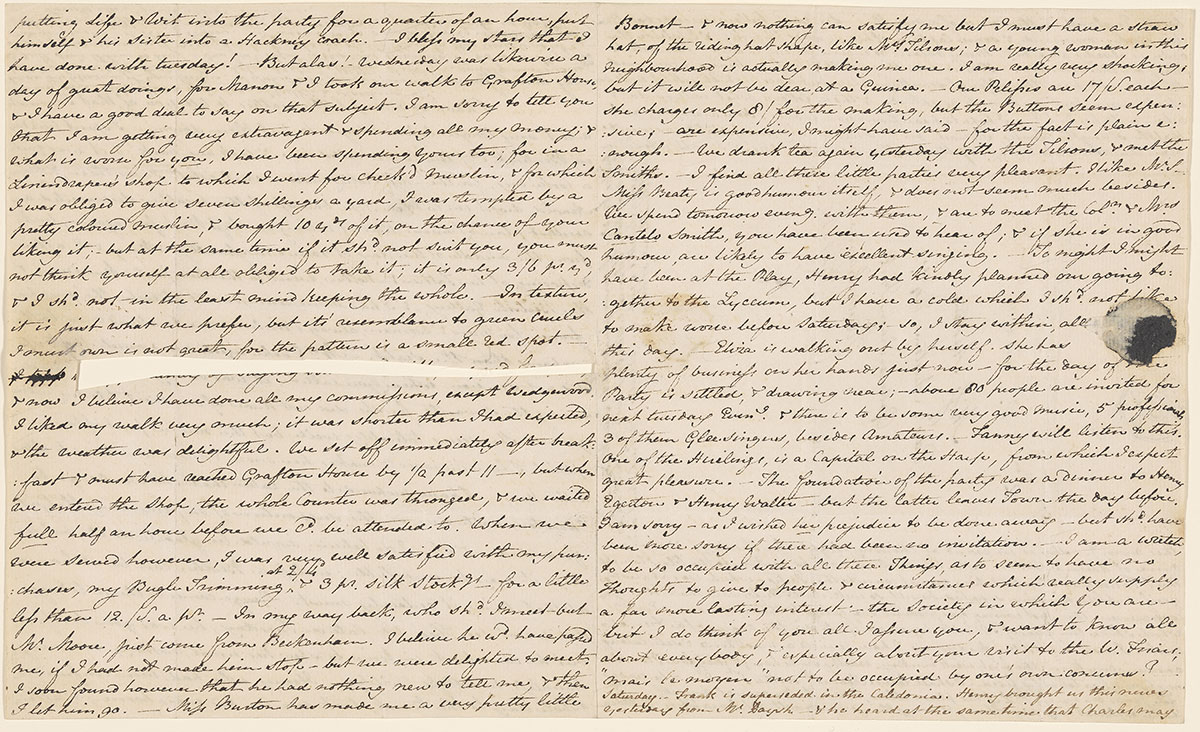 putting Life & Wit into the party for a quarter of an hour, put
himself & his Sister into a Hackney coach. — I bless my stars that I
have done with tuesday! — But alas! — Wednesday was likewise a
day of great doings, for Manon & I took our walk to Grafton House,
& I have a good deal to say on that subject. I am sorry to tell you
that I am getting very extravagant & spending all my Money; &
what is worse for you, I have been spending yours too; for in a
Linendraper's shop to which I went for check'd Muslin, & for which
I was obliged to give seven shillings a yard, I was tempted by a
pretty coloured muslin, & bought 10 yds of it, on the chance of your
liking it; — but at the same time if it shd not suit you, you must
not think yourself at all obliged to take it; it is only 3/6 pr yd,
& I shd not in the least mind keeping the whole. — In texture,
it is just what we prefer, but it's resemblance to green cruels
I must own is not great, for the pattern is a small red spot. —
& now I beleive I have done all my commissions, except Wedgwood.
I liked my walk very much; it was shorter than I had expected,
& the weather was delightful. We set off immediately after break:
:fast & must have reached Grafton House by 1/2 past 11 —, but when
we entered the Shop, the whole Counter was thronged, & we waited
full half an hour before we cd be attended to. When we
were served however, I was very well satisfied with my pur:
:chases, my Bugle Trimming at 2/4 & 3 pr silk Stockgs for a little
less than 12./S. a pr — In my way back, who shd I meet but
Mr Moore, just come from Beckenham. I beleive he wd have passed
me, if I had not made him stop — but we were delighted to meet,
I soon found however that he had nothing new to tell me, & then
I let him go. — Miss Burton has made me a very pretty little
Bonnet — & now nothing can satisfy me but I must have a straw
hat, of the riding hat shape, like Mrs Tilsons; & a young woman in this
Neighbourhood is actually making me one. I am really very shocking;
but it will not be dear at a Guinea. — Our Pelisses are 17/S. each —
she charges only 8/ for the making, but the Buttons seem expen:
:sive; — are expensive, I might have said — for the fact is plain e:
:nough. — We drank tea again yesterday with the Tilsons, & met the
Smiths. — I find all these little parties very pleasant. I like Mr S.
Miss Beaty is goodhumour itself, & does not seem much besides.
We spend tomorrow eveng with them, & are to meet the Coln & Mrs
Cantelo Smith, you have been used to hear of; & if she is in good
humour are likely to have excellent singing. — To night I might
have been at the Play, Henry had kindly planned our going to:
:gether to the Lyceum, but I have a cold which I shd not like
to make worse before Saturday; so, I stay within all
this day. — Eliza is walking out by herself. She has
plenty of business on her hands just now — for the day of the
Party is settled, & drawing near; — above 80 people are invited for
next tuesday Eveng & there is to be some very good Music, 5 professionals,
3 of them Glee-singers, besides Amateurs. — Fanny will listen to this.
One of the Hirelings, is a Capital on the Harp, from which I expect
great pleasure. — The foundation of the party was a dinner to Henry
Egerton & Henry Walter — but the latter leaves Town the day before.
I am sorry — as I wished her prejudice to be done away — but shd have
been more sorry if there had been no invitation. — I am a wretch,
to be so occupied with all these Things, as to seem to have no
Thoughts to give to people & circumstances which really supply
a far more lasting interest — the Society in which You are —
but I do think of you all I assure you, & want to know all
about every body, & especially about your visit to the W. Friars;
"mais le moyen" not to be occupied by one's own concerns?
Saturday. — Frank is superseded in the Caledonia. Henry brought us this news
yesterday from Mr Daysh — & he heard at the same time that Charles may